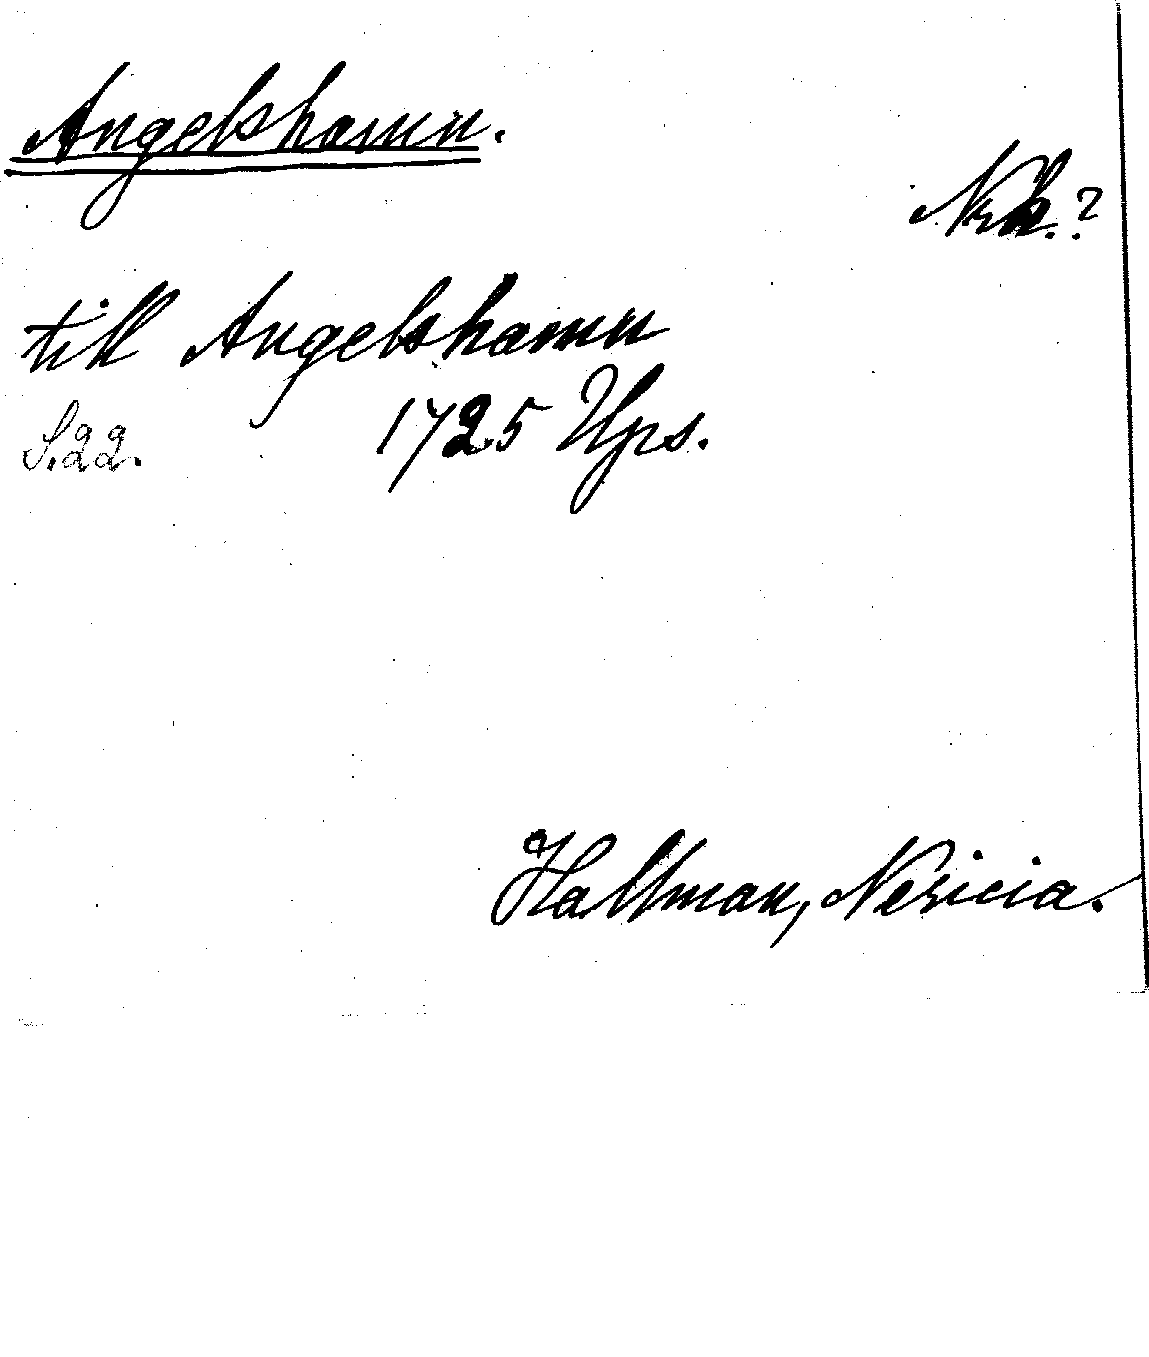 Angelshamn.
Nrk.?
till Angelshamn
S.22. 1725 Ups.
Hallman, Nericia.